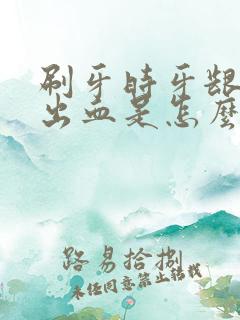 刷牙時牙龈
出血是怎麽
路易拾捌
未经同意禁止转载